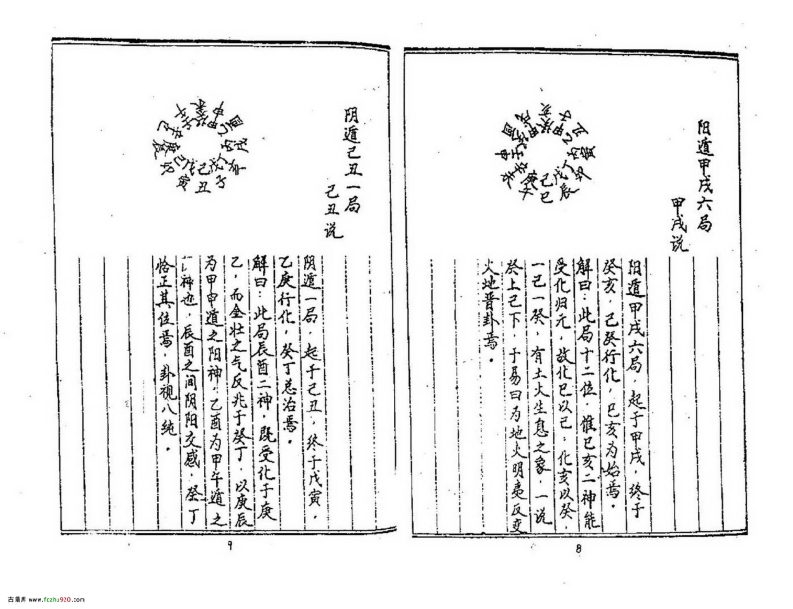 阳遁甲戌六局
甲戌说
阳遁甲戌六局，起于甲戌，终于
癸亥，己癸行化，巳亥为始焉。
解曰：此局十二位，惟巳亥二神能
受化归元，故化巳以己，化亥以癸，
一己一癸，有土火生息之象，一说
於上己下，于易曰为地火明夷反变
火地晋卦焉。
8
阴遁己丑一局
己丑说
阴遁一局，起于己丑，终于戊寅，
乙庚行化，癸丁总治焉。
解曰：此局辰酉二神，既受化于庚
乙，而金壮之气反兆于癸丁，以庚辰
为甲申遁之阳神，乙酉为甲午遁之
神也，辰酉之间阴阳交感，癸丁
恰正其位焉，卦视八纯。
9
古易井 www.fczhu920.com